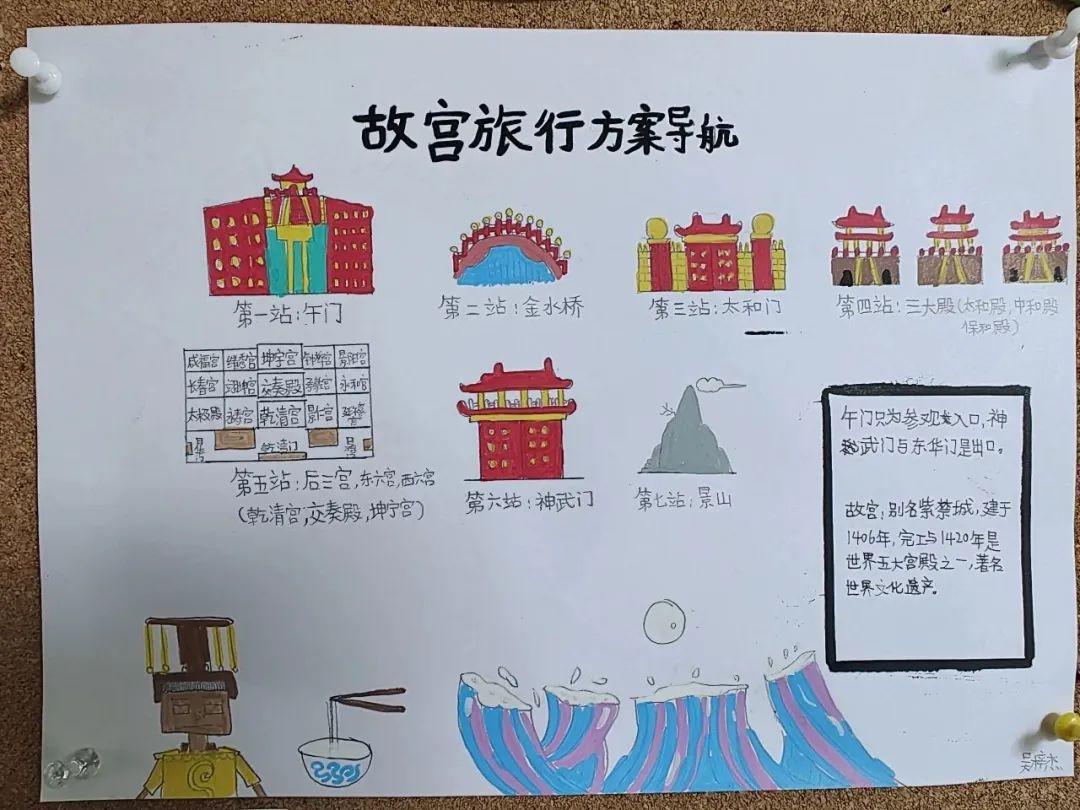 故宫旅行方案导航
第一站:午门
第二站:金水桥
第三站:太和门
第四站:三大殿(太和殿,中和殿
保和殿)
咸福宫 储秀宫 坤宁宫 钟粹宫 景阳宫
长春宫 翊坤宫 交奏殿 承乾宫 永和宫
太极殿 永寿宫 乾清宫 景仁宫 延禧宫
乾清门
第五站:后三宫,东六宫,西六宫
(乾清宫,交奏殿,坤宁宫)
第六站:神武门
第七站:景山
午门只为参观入口,神
武门与东华门是出口。
故宫:别名紫禁城,建于
1406年,完工与1420年是
世界五大宫殿之一,著名
世界文化遗产。